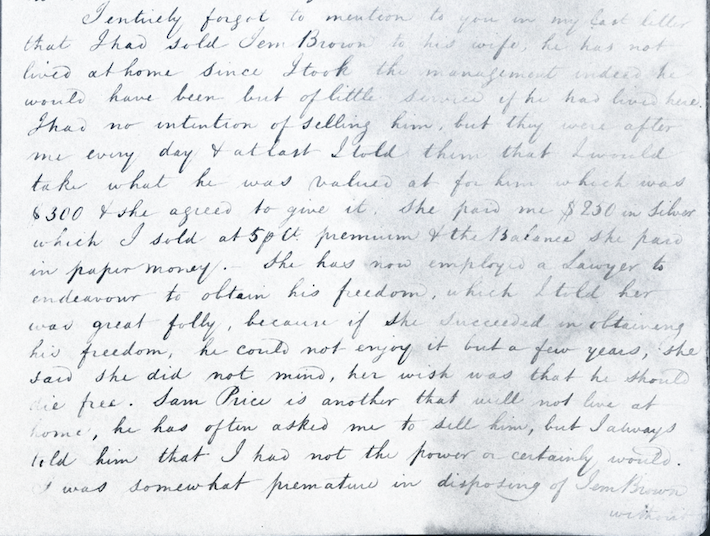 I entirely forgot to mention to you in my last letter
that I had sold Jem Brown to his wife, he has not
lived at home since I took the management indeed he
would have been but of little service if he had lived here.
I had no intention of selling him, but they were after
me every day & at last I told them that I would
take what he was valued at for him which was
$300 & she agreed to give it. She paid me $250 in Silver
which I sold at 5 p Ct. premium & the Balance she paid
in paper money. — She has now employed a Lawyer to
endeavour to obtain his freedom, which I told her
was great folly, because if she succeeded in obtaining
his freedom, he could not enjoy it but a few years, she
said she did not mind, her wish was that he should
die free. Sam Price is another that will not live at
home, he has often asked me to sell him, but I always
told him that I had not the power or certainly would.
I was somewhat premature in disposing of Jem Brown
without